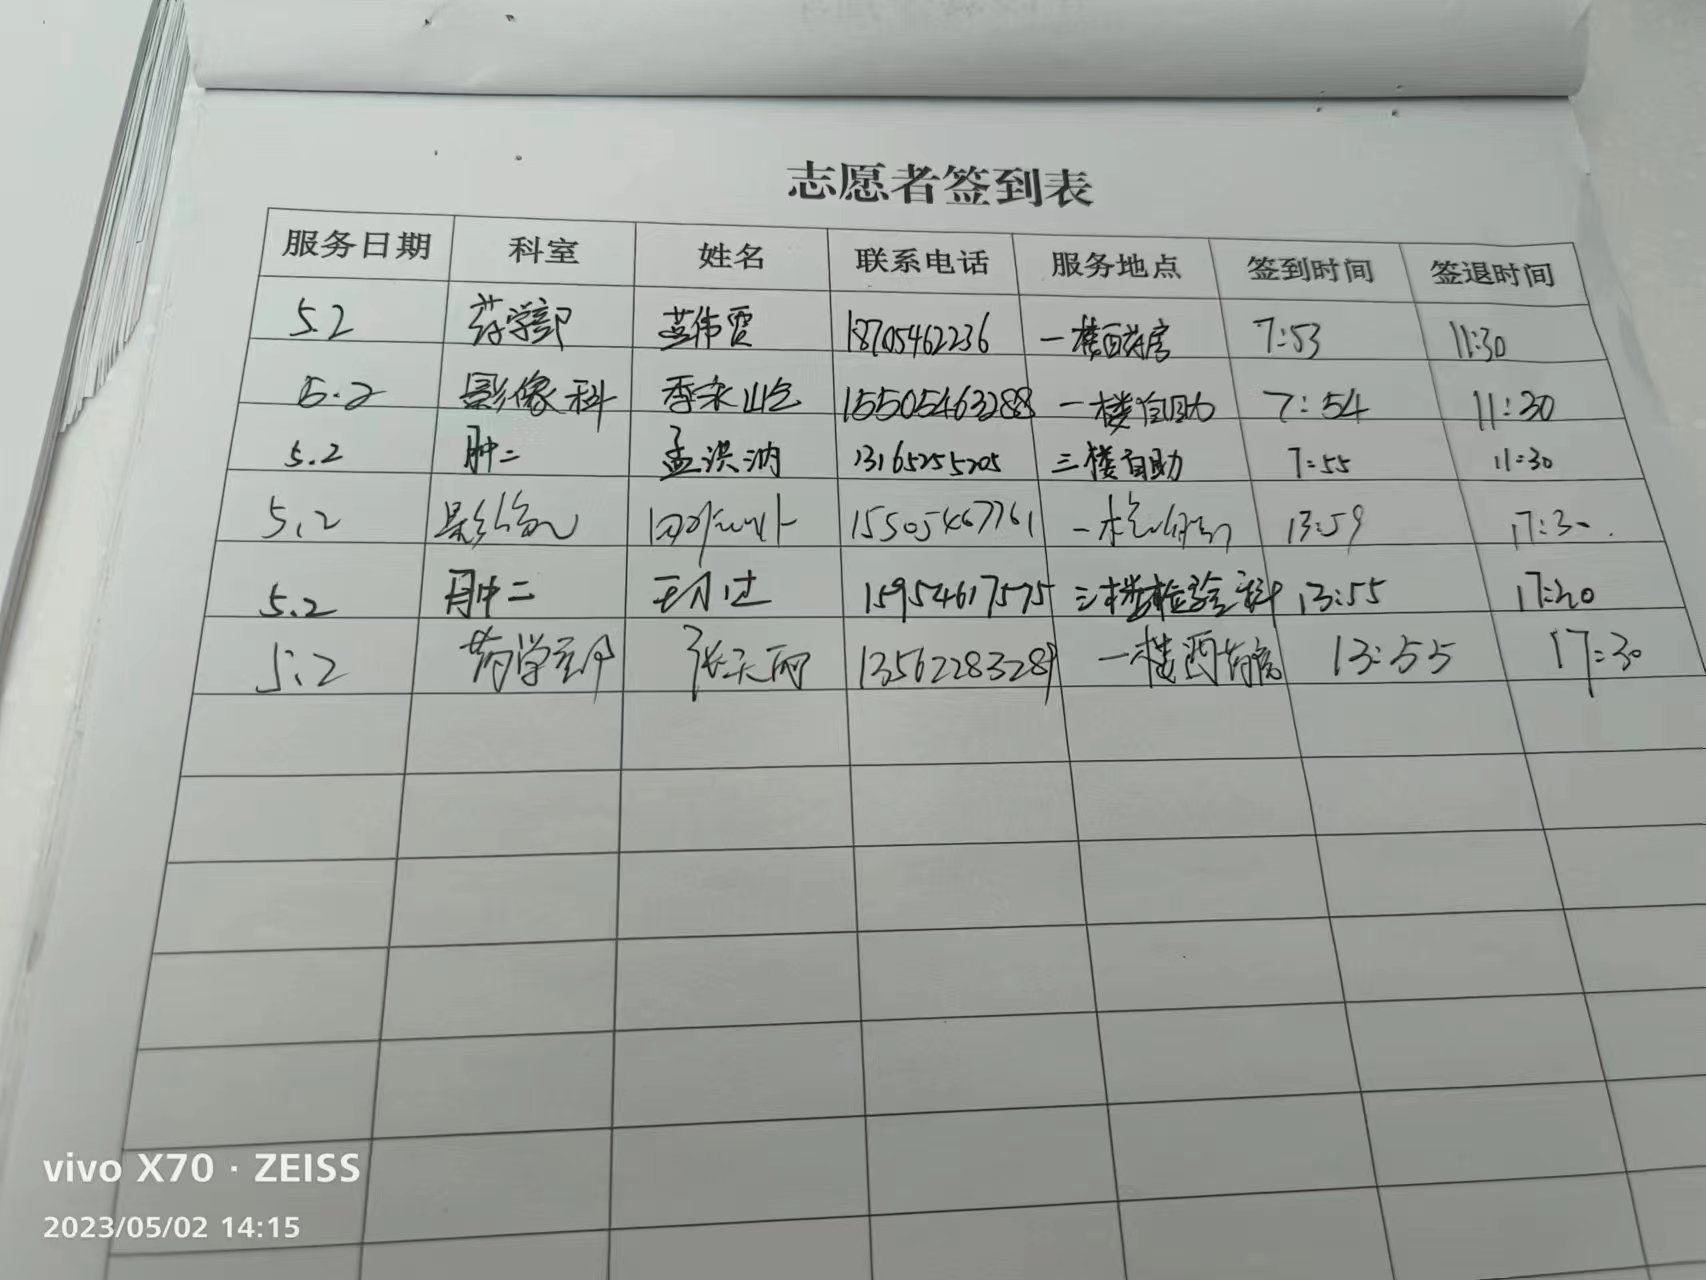 志愿者签到表
服务日期 科室 姓名 联系电话 服务地点 签到时间 签退时间
5.2 药学部 伟霞 18705462236 一楼西药房 7:53 11:30
5.2 影像科 15505463288 一楼自助 7:54 11:30
5.2 肿二 孟洪 13165255205 三楼自助 7:55 11:30
5.2 影像 15505467761 13:59 17:30
5.2 肿二 15954617575 三楼检验科 13:55 17:30
5.2 药学部 张天丽 13562283289 一楼西药房 13:55 17:30
vivo X70 · ZEISS
2023/05/02 14:15